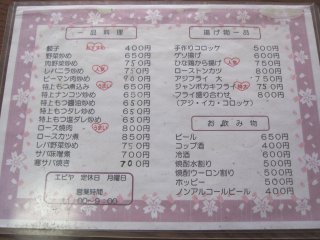 一品料理
餃子 400円
野菜炒め 650円
肉野菜炒め 750円
レバニラ炒め 750円
ピーマン肉炒め 750円
特上もつ煮込み 650円
特上ナンコツ炒め 650円
特上もつ醤油炒め 650円
特上もつタレ炒め 650円
特上もつ塩ダレ炒め 650円
ロース焼肉 800円
ロースカツ煮 850円
レバ野菜炒め 750円
サバ味噌煮 700円
塩サバ焼き 700円
エビヤ 定休日 月曜日
営業時間
00~9:00
揚げ物一品
手作りコロッケ 500円
ゲソ揚げ 600円
ひな鶏から揚げ 750円
ローストンカツ 800円
アジフライ 大 750円
ジャンボカキフライ 750円
フライ盛り合わせ 800円
(アジ・イカ・コロッケ)
お飲み物
ビール 650円
コップ酒 400円
冷酒 600円
焼酎水割り 500円
焼酎ウーロン割り 500円
ホッピー 500円
ノンアルコールビール 400円